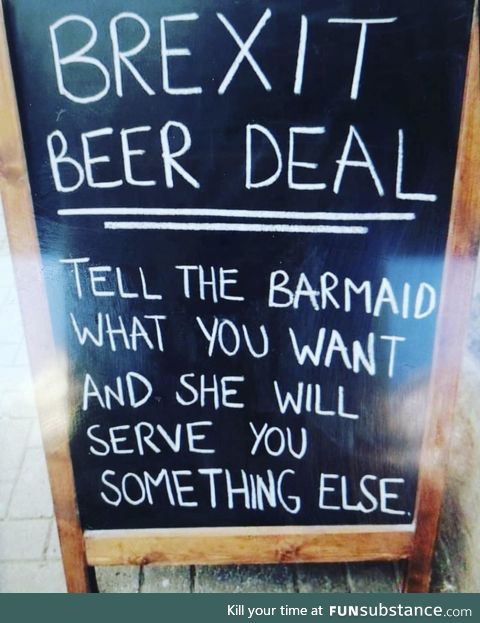 BREXIT
BEER DEAL
TELL THE BARMAID
WHAT YOU WANT
AND SHE WILL
SERVE YOU
SOMETHING ELSE.
Kill your time at FUNsubstance.com